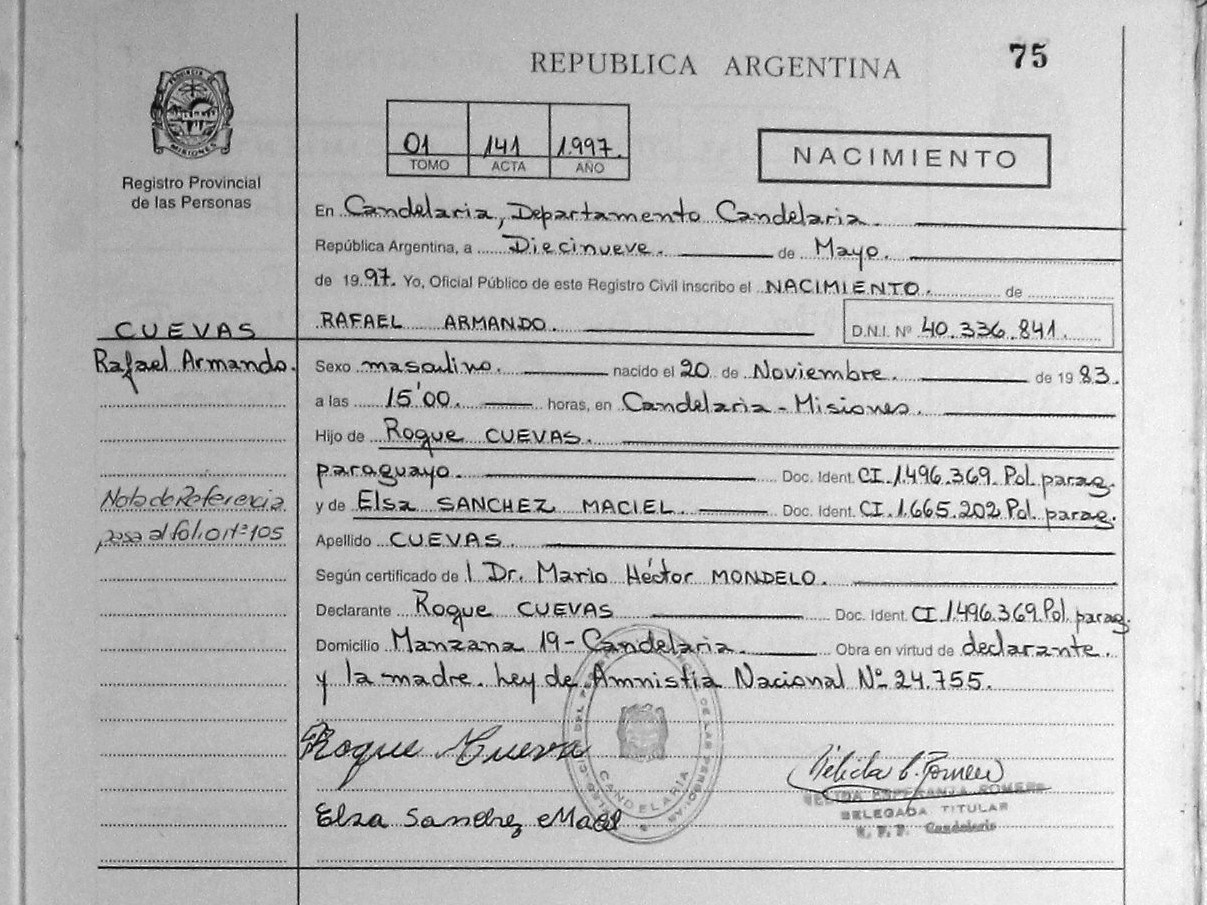 75
REPUBLICA ARGENTINA
PROVINCIA DE
MISIONES
Registro Provincial
de las Personas
01 141 1.997.
TOMO ACTA AÑO
NACIMIENTO
En Candelaria, Departamento Candelaria.
República Argentina, a Diecinueve. de Mayo.
de 1997. Yo, Oficial Público de este Registro Civil inscribo el NACIMIENTO. de
RAFAEL ARMANDO. D.N.I. Nº 40.336.841.
CUEVAS
Rafael Armando.
Sexo masculino. nacido el 20 de Noviembre. de 1983.
a las 15'00. horas, en Candelaria - Misiones.
Hijo de Roque CUEVAS.
paraguayo. Doc. Ident. CI. 1.496.369. Pol. parag.
y de Elsa SANCHEZ MACIEL. Doc. Ident. CI. 1.665.202 Pol. parag.
Nota de Referencia
pasa al folio nº 105
Apellido CUEVAS.
Según certificado de l Dr. Mario Héctor MONDELO.
Declarante Roque CUEVAS Doc. Ident. CI. 1.496.369. Pol. parag.
Domicilio Manzana 19 - Candelaria. Obra en virtud de declarante.
y la madre. Ley de Amnistia Nacional Nº 24.755.
Roque Cueva
Elsa Sanchez Maciel
CANDELARIA
NELIDA ESPERANZA ROMERO
DELEGADA TITULAR
Candelaria